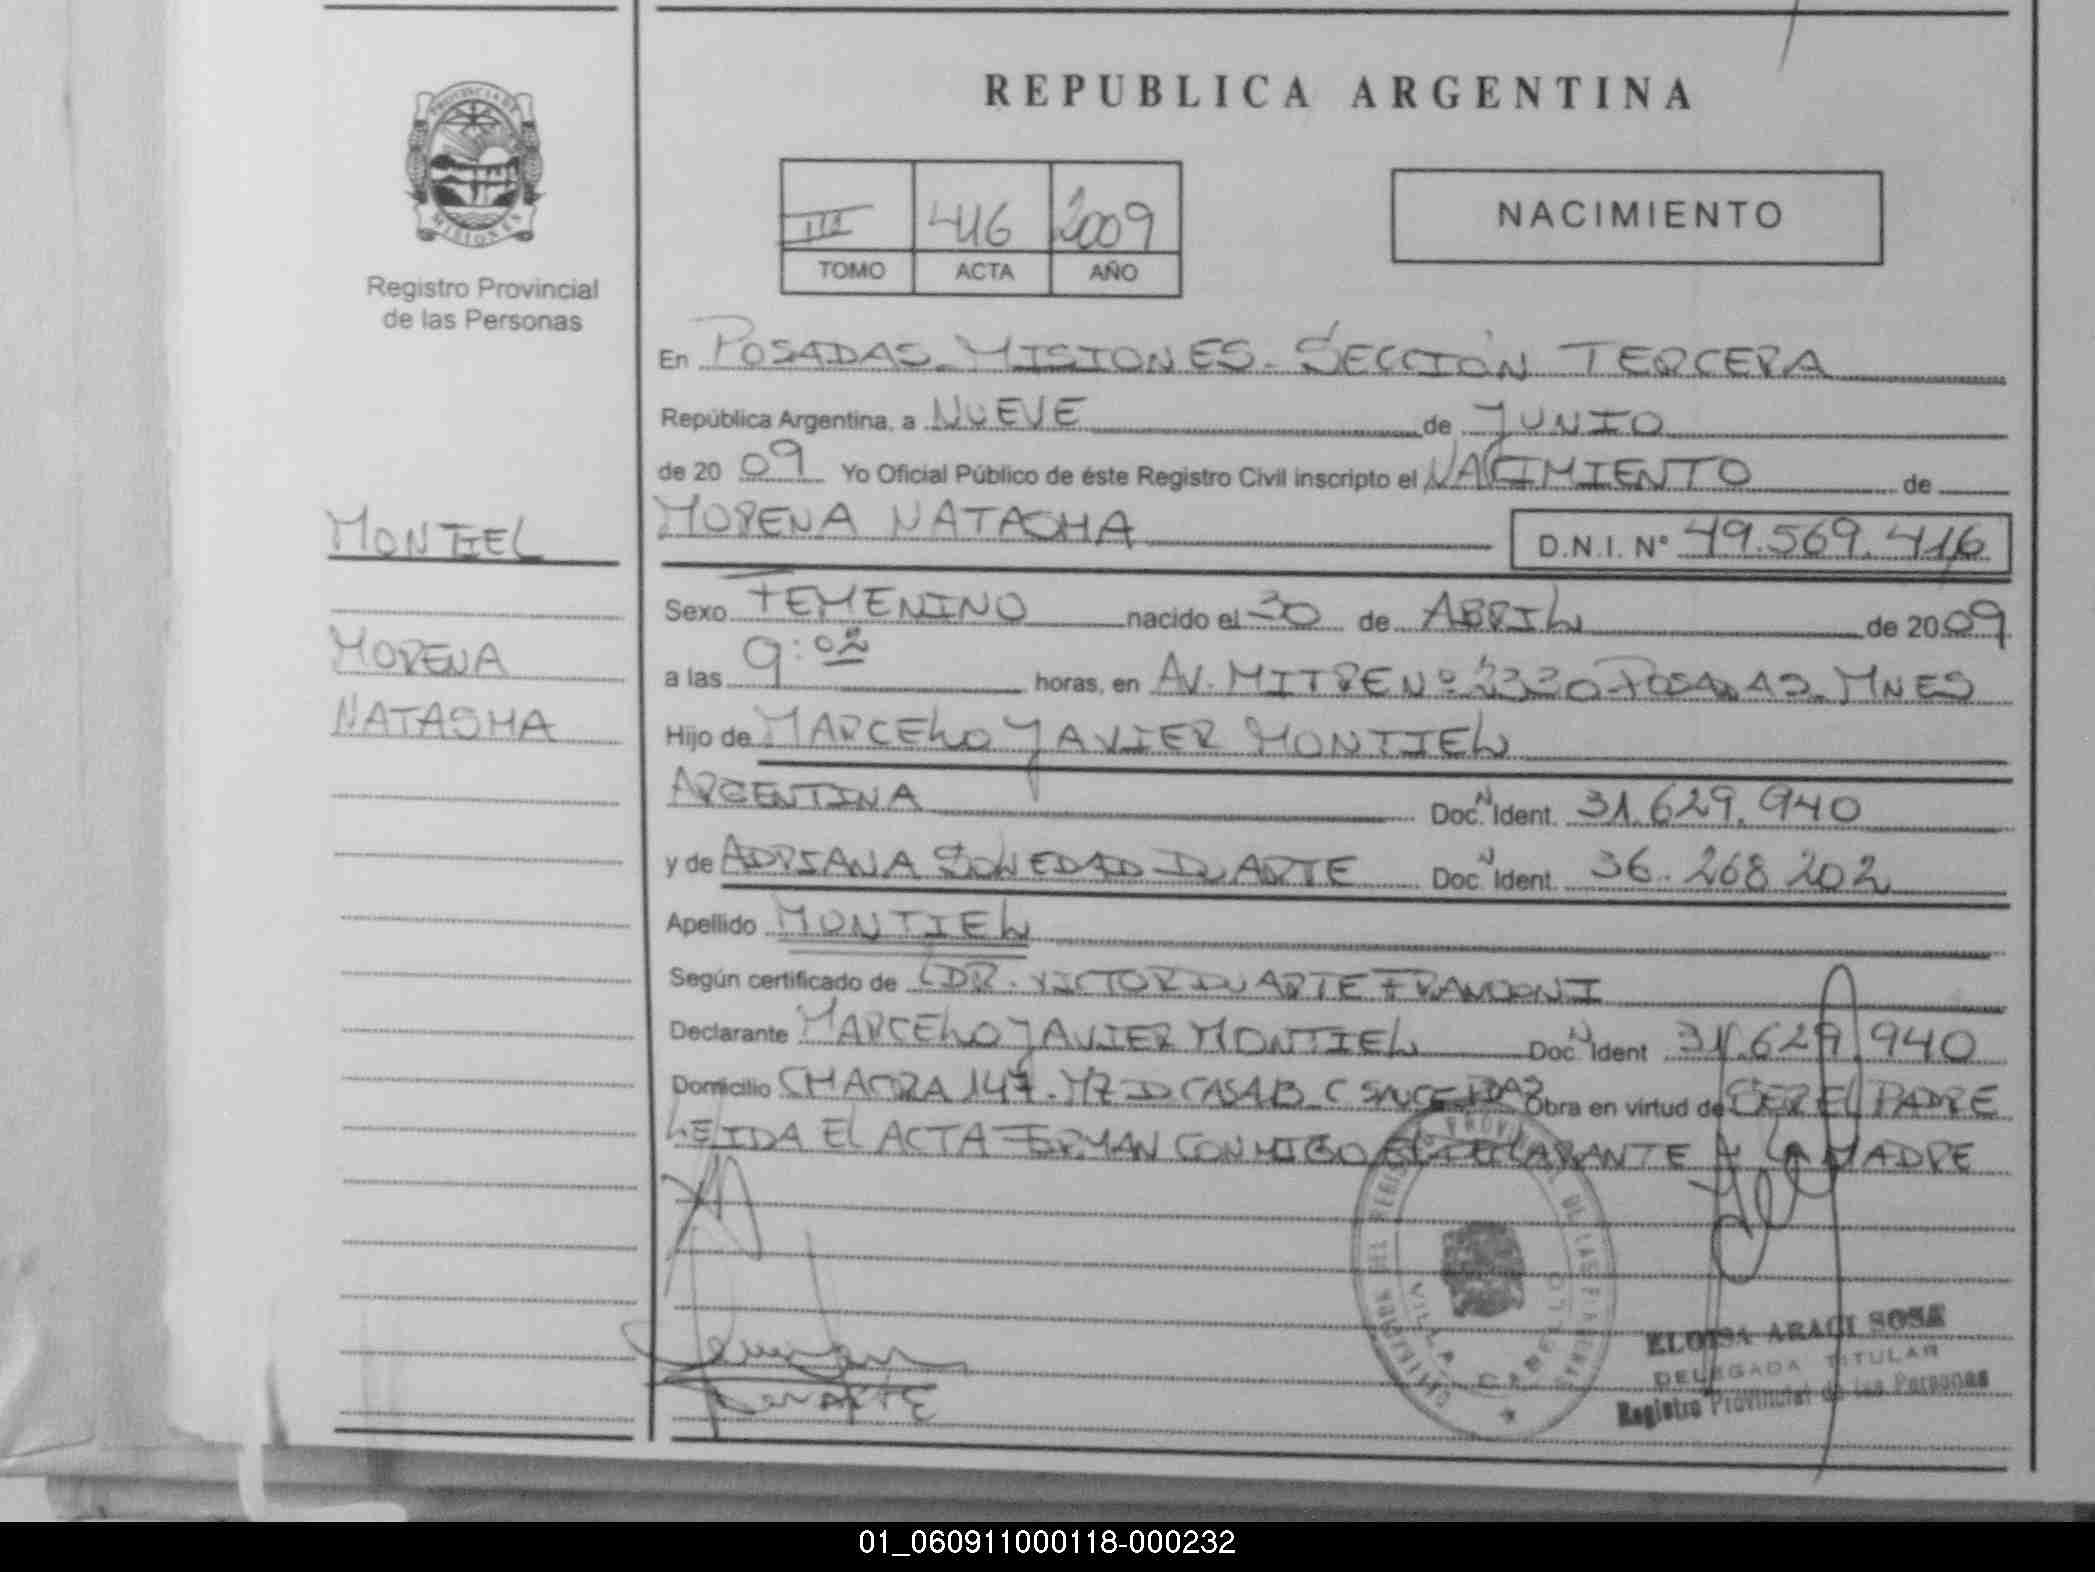 REPUBLICA ARGENTINA
PROVINCIA DE
MISIONES
Registro Provincial
de las Personas
III 416 2009
TOMO ACTA AÑO
NACIMIENTO
En POSADAS - MISIONES - SECCIÓN TERCERA
República Argentina, a NUEVE de JUNIO
de 20 09 Yo Oficial Público de éste Registro Civil inscripto el NACIMIENTO de
MONTIEL
MORENA NATASHA D.N.I. Nº 49.569.416
Sexo FEMENINO nacido el 30 de ABRIL de 20 09
MORENA
NATASHA
a las 9:02 horas, en AV. MITRE Nº 2330 POSADAS - MNES
Hijo de MARCELO JAVIER MONTIEL
ARGENTINA Doc. N Ident. 31.629.940
y de ADRIANA SOLEDAD DUARTE Doc. N Ident. 36.268.202
Apellido MONTIEL
Según certificado de DR. VICTOR DUARTE
Declarante MARCELO JAVIER MONTIEL Doc. N Ident 31.629.940
Domicilio CHACRA 147 - CASA Obra en virtud de SER EL PADRE
LEIDA EL ACTA FIRMAN CONMIGO EL DECLARANTE Y LA MADRE
DUARTE
REGISTRO PROVINCIAL DE LAS PERSONAS
VILLA CABELLO
ELOISA ARACI SOSA
DELEGADA TITULAR
Registro Provincial de las Personas
01_060911000118-000232